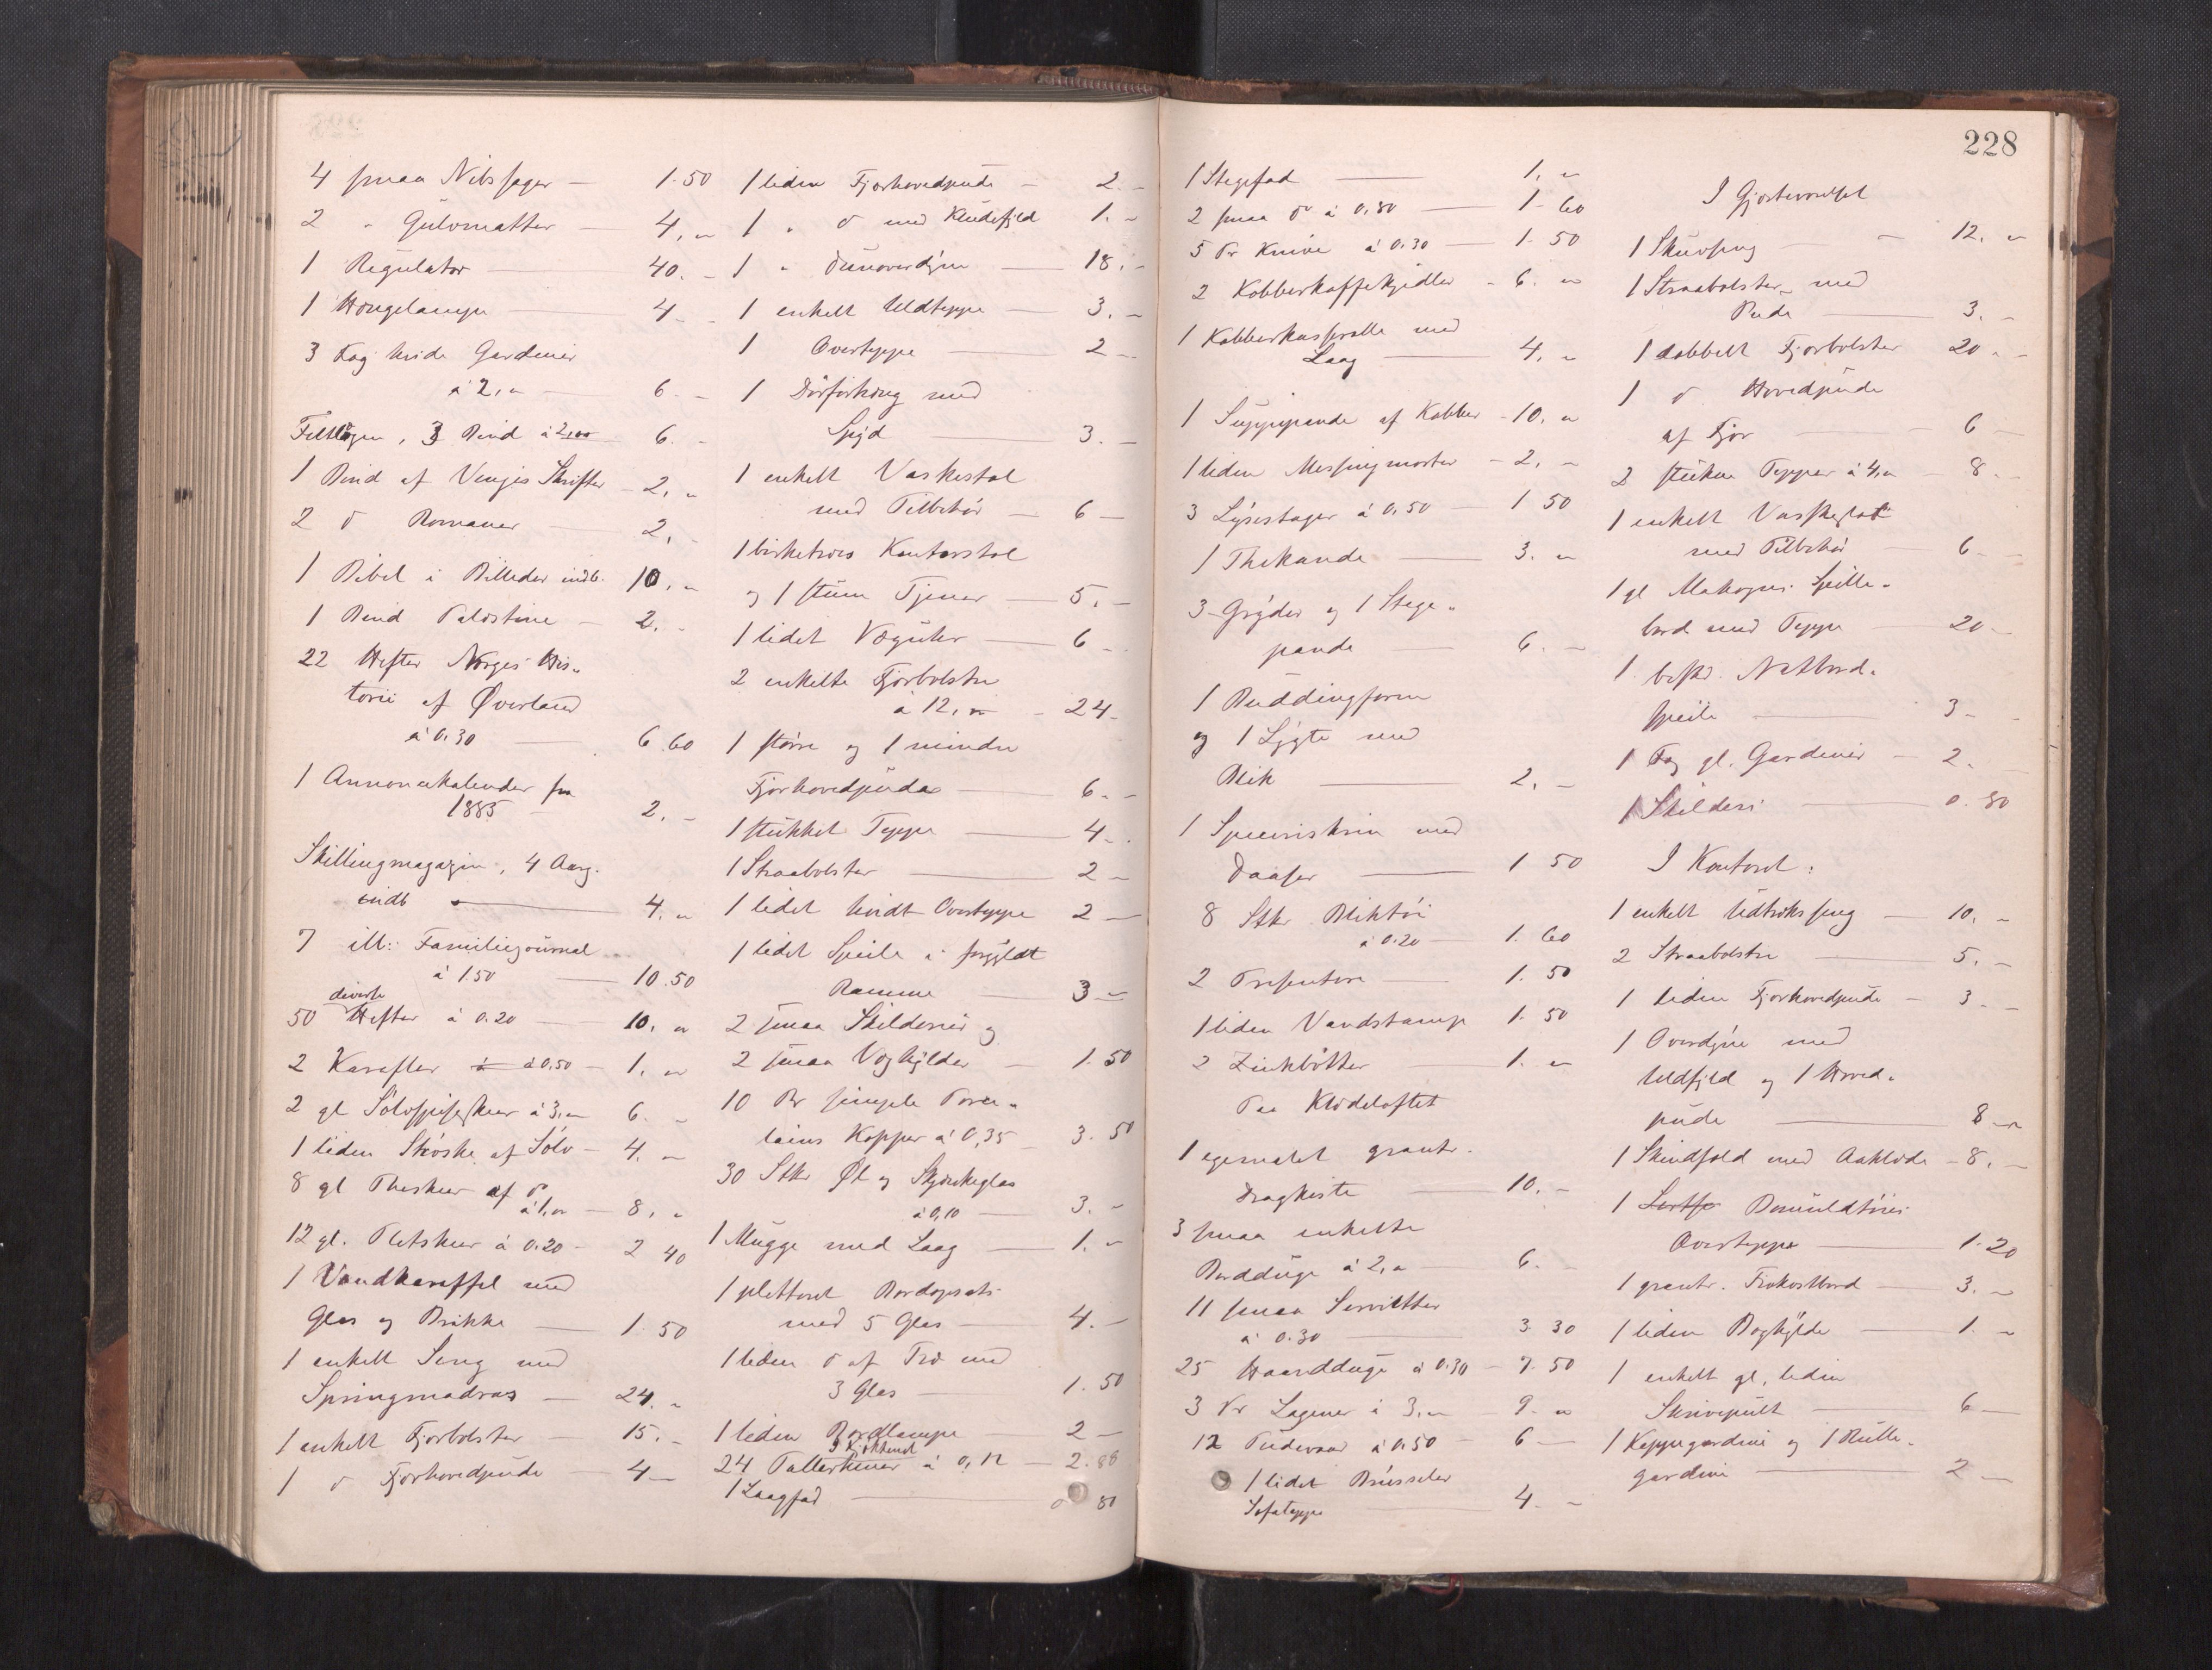 4 smaa Nibssager — 1.50
2 " Gulvmatter — 4. "
1 Regulator — 40. -
1 Hængelampe — 4 -
3 Fag hvide Gardiner
à 2, " — 6 -
3 Bind à 2,00 6. -
1 Bind af Vinjes Skrifter - 2. "
2 d Romaner — 2. -
1 Bibel i Billeder indb. 10. "
1 Bind Palæstina — 2. -
22 Hefter Norges His-
torie af Øverland
à 0.30 — 6.60
1 Annoncekalender fra
1885 — 2. -
Skillingmagazin, 4 Aarg.
indb — 4. "
7 ill: Familiejournal
à 1.50 — 10.50
diverse
50 Hefter à 0.20 — 10. "
2 Karafler à 0,50 — 1. "
2 gl Sølvspiseskeer à 3, " 6. "
1 liden Skøske af Sølv — 4. "
8 gl Theskeer af do
à 1, " — 8. "
12 gl. Pletskeer à 0.20 - 2 40
1 Vandkaraffel med
Glas og Brikke — 1.50
1 enkelt Seng med
Springmadras — 24. "
1 enkelt Fjørbolster — 15. -
1 d Fjørhovedpude — 4 —
1 liden Fjørhovedpude — 2. -
1 " d med Kludefyld 1. -
1 " Dunoverdyne — 18. -
1 enkelt Uldteppe — 3. -
1 Overteppe 2 —
1 Dørforhæng med
Spyd — 3. —
1 enkelt Vaskestol
med Tilbehør — 6 —
1 birketræes Kontorstol
og 1 stum Tjener — 5. -
1 lidet Væguhr — 6 -
2 enkelte Fjørbolstre
à 12, " - 24 -
1 større og 1 mindre
Fjørhovedpuder — 6. -
1 stukket Teppe — 4 -
1 Straabolster — 2 -
1 lidet hvidt Overteppe 2 —
1 lidet Speile i forgyldt
Ramme — 3 —
2 smaa Skilderier og
2 smaa Væghylder — 1.50
10 Pr simple Porce-
lains Kopper à 0,35 — 3.50
30 Stkr Øl og Skjænkeglas
à 0,10 — 3. -
1 Mugge med Laag — 1. -
1 pletteret Bordopsats
med 5 Glas — 4. -
1 liden d af Træ med
3 Glas — 1.50
1 liden Bordlampe — 2 —
I Kjøkkenet
24 Tallerkener à 0,12 — 2.88
1 Laagfad — 0 80
228
1 Stegefad — 1. "
2 smaa do à 0,80 — 1 60
5 Pr Knive à 0.30 — 1 50
2 Kobberkaffekjedler - 6. "
1 Kobberkasserolle med
Laag — 4. "
1 Suppepande af Kobber - 10. "
1 liden Messingmorter - 2. -
3 Lysestager à 0,50 - 1 50
1 Thekande — 3. "
3 Gryder og 1 Stege-
pande — 6. -
1 Buddingform
og 1 Lygte med
Blik — 2. -
1 Speceriskrin med
Daaser — 1 50
8 Stkr Bliktøi
à 0.20 — 1. 60
2 Presentere — 1. 50
1 liden Vandstamp 1. 50
2 Zinkbøtter — 1. "
Paa Klædeloftet
1 egemalet grantr.
Dragkiste — 10. -
3 smaa enkelte
Bordduge à 2, " — 6. -
11 smaa Servietter
à 0.30 — 3 30
25 Haandduge à 0.30 — 7.50
3 Pr Lagener à 3, " — 9. "
12 Pudevaar à 0.50 — 6 —
1 lidet Brüsseler
Sofateppe — 4. -
I Gjesteværelset
1 Skuvseng — 12. "
1 Straabolster med
Pude — 3. -
1 dobbelt Fjørbolster 20 "
1 d Hovedpude
af Fjør — 6 -
2 stukne Tepper à 4, " — 8 -
1 enkelt Vaskestol
med Tilbehør — 6 -
1 gl Mahogni Spille-
bord med Teppe — 20 -
1 besk. Natbord.
speile — 3 -
1 Fag gl. Gardiner — 2. -
1 Skilderi — 0.80
I Kontoret:
1 enkelt Udtræksseng — 10. -
2 Straabolstre — 5. -
1 liden Fjørhovedpude — 3. -
1 Overdyne med
Uldfyld og 1 Hoved-
pude — 8 -
1 Skindfeld med Aaklæde - 8. -
1 Bomuldtøies
Overteppe — 1.20
1 grantr. Frokostbord — 3. -
1 liden Boghylde — 1. -
1 enkelt gl. liden
Skrivepult — 6 —
1 Kappegardine og 1 Rulle-
gardine — 2 —